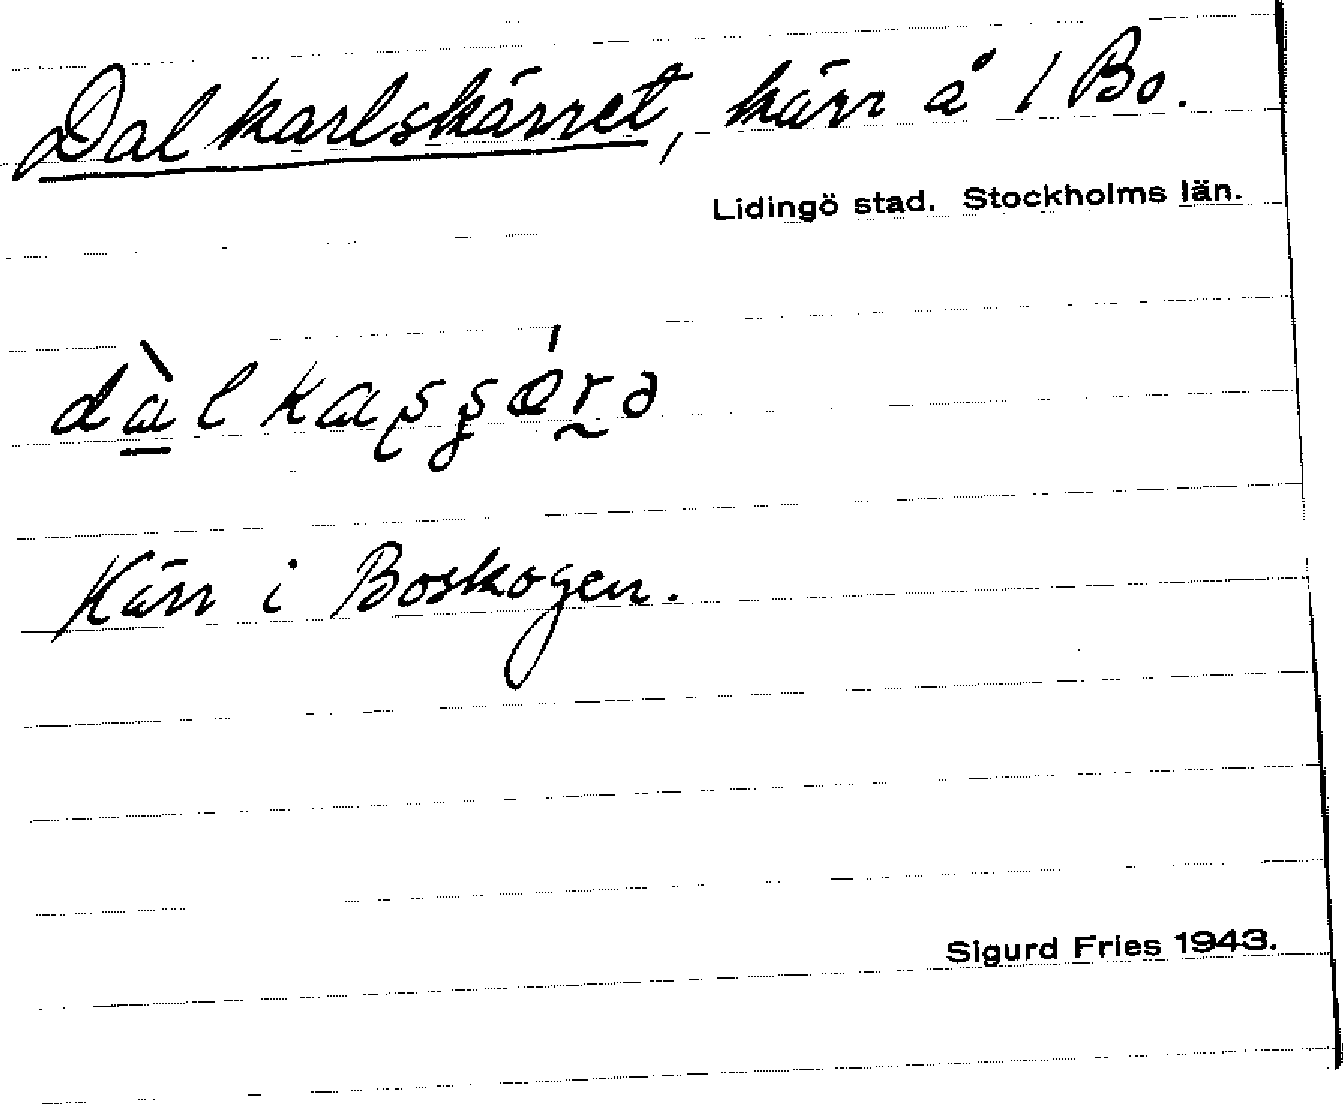 Dalkarlskärret, kärr å 1 Bo.
Lidingö stad. Stockholms län.
Kärr i Boskogen.
Sigurd Fries 1943.